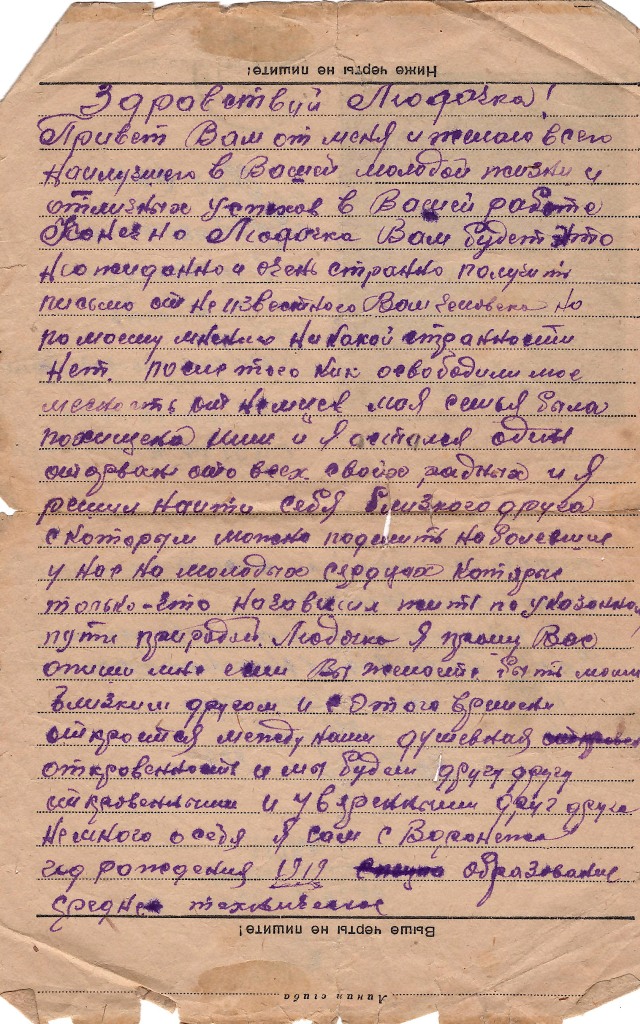 Ниже черты не пишите!
Здравствуй Людочка!
Привет Вам от меня и желаю всего
наилучшего в Вашей молодой жизни и
отличных успехов в Вашей работе
Конечно Людочка Вам будет это
неожиданно и очень странно получить
письмо от неизвестного Вам человека но
по моему мнению никакой странности
нет. после того как освободили мое
местность от немцев моя семья была
похищена ими и я остался один
оторван ото всех свойх родных и я
решил найти себя близкого друга
с которым можно поделить наболевшие
у нас на молодых сердцах которые
только-что жить по указанной
пути природой. Людочка я прошу Вас
опиши мне если Вы желаете быть моим
близким другом и с этого времени
откроется между нами душевная
откровенность и мы будем друг другу
откровенными и уверенными друг друга
немного о себя я сам с Воронежа
год рождения 1919 образование
средне техническое
Выше черты не пишите!
Линия сгиба